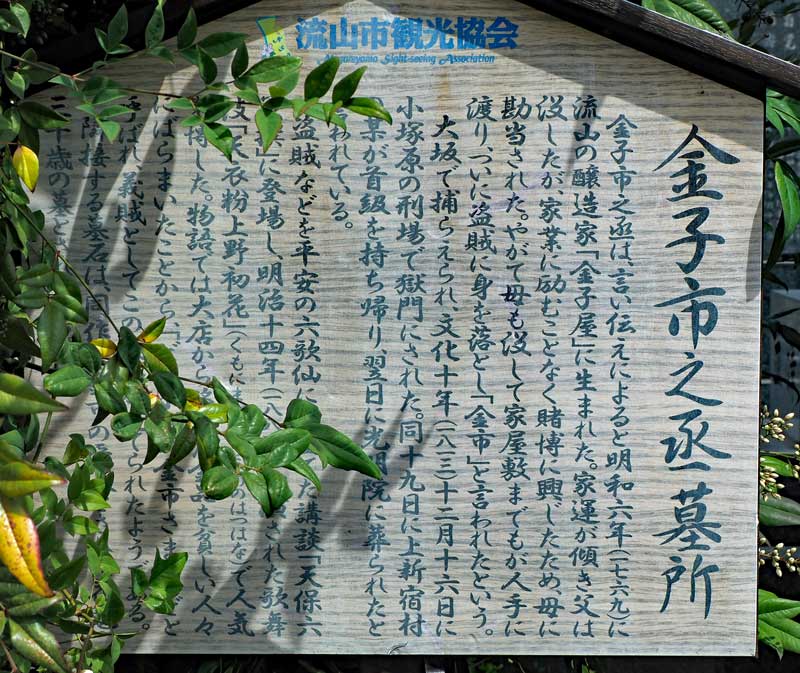 流山市観光協会
Nagareyama Sight-seeing Association
金子市之丞墓所
金子市之丞は、言い伝えによると明和六年(一七六九)に
流山の醸造家「金子屋」に生まれた。家運が傾き父は
没したが家業に励むことなく賭博に興じたため、母に
勘当された。やがて母も没して家屋敷までもが人手に
渡り、ついに盗賊に身を落とし「金市」と言われたという。
大坂で捕らえられ、文化十年(一八一三)十二月十六日に
小塚原の刑場で獄門にされた。同十九日に上新宿村
の某が首級を持ち帰り、翌日に光明院に葬られたと
言われている。
盗賊などを平安の六歌仙に た講談「天保六
に登場し、明治十四年(一八 された歌舞
伎「天衣粉上野初花」(くもに のはつはな)で人気
博した。物語では大店から 品を貧しい人々
にばらまいたことから 金市さま と
ばれ、義賊としてこの
隣接する墓石は、同作 市の てられたようである。
三千歳の墓と